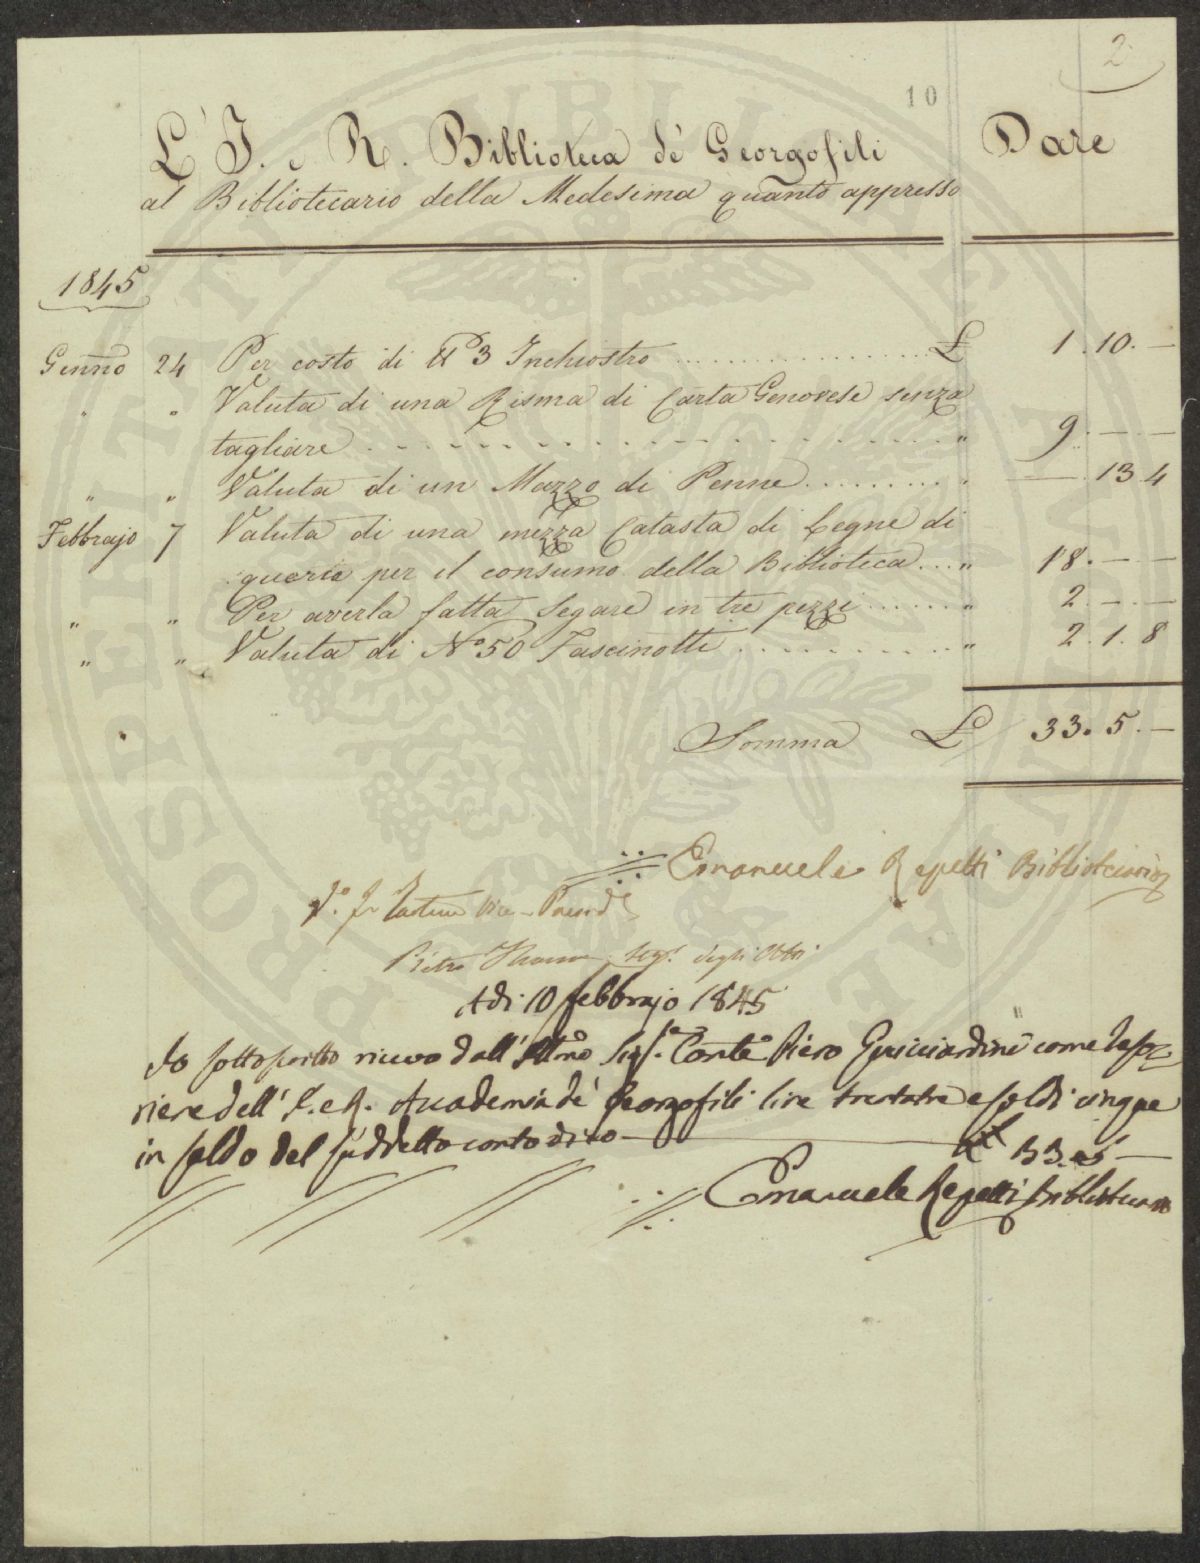 2
10
L' I. e R. Biblioteca de' Georgofili Dare
al Bibliotecario della Medesima quanto appresso
1845
Genno 24 Per costo di 3 Inchiostro £ 1.10.—
" " Valuta di una Risma di Carta Genovese senza
tagliare " 9.—.—
" " Valuta di un Mazzo di Penne " —.13.4
Febbrajo 7 Valuta di una mezza Catasta di Legne di
quercia per il consumo della Biblioteca " 18.—.—
" " Per averla fatta segare in tre pezzi " 2.—.—
" " Valuta di N.º 50 Fascinotti " 2.1.8
Somma £ 33.5.—
Emanuele Repetti Bibliotecario
V.º Vice-Presid.e
Pietro Seg.º degli Atti
Adi 10 febbrajo 1845
Io sottoscritto ricevo dall' Illmo Sig.r Conte Piero Guicciardini come Teso-
riere dell' I. e R. Accademia de' Georgofili lire trentatre e soldi cinque
in saldo del suddetto conto dico £ 33.5—
Emanuele Repetti Bibliotecario
PROSPERITATI PUBLICAE AUGENDAE